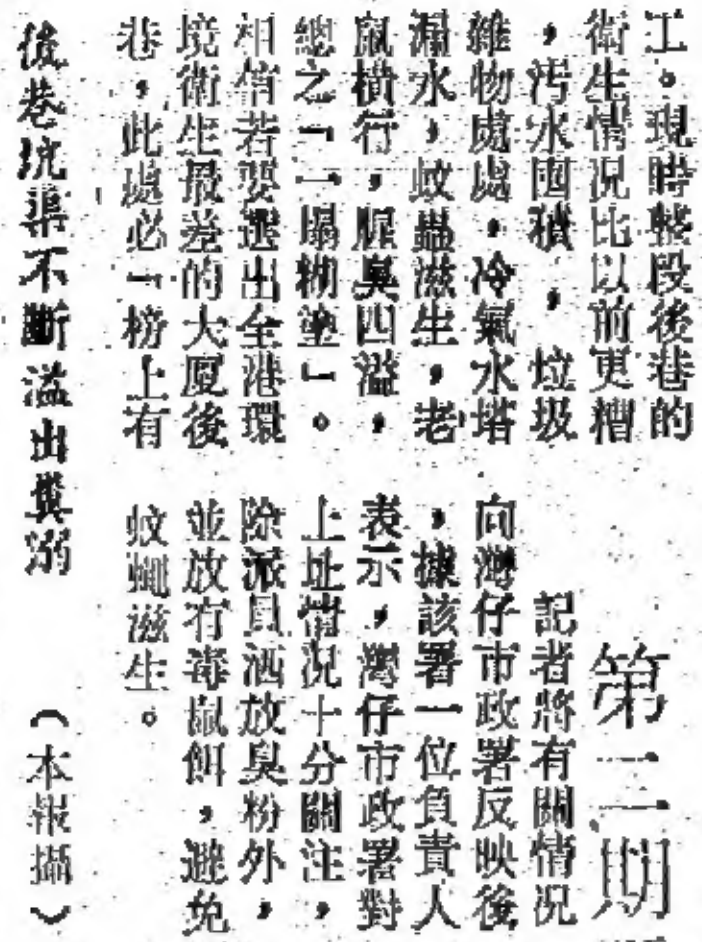 工。現時整段後巷的
衛生情況比以前更糟
，污水囤積，垃圾
雜物處處，冷氣水塔
漏水，蚊蟲滋生，老
鼠橫行，腥臭四溢，
總之「一塌糊塗」。
相信若要選出全港環
境衛生最差的大廈後
巷，此處必「榜上有
第二期
記者將有關情況
向灣仔市政署反映後
，據該署一位負責人
表示，灣仔市政署對
上址情況十分關注，
除派員洒放臭粉外，
並放有毒鼠餌，避免
蚊蠅滋生。
後巷坑渠不斷溢出糞溺　（本報攝）